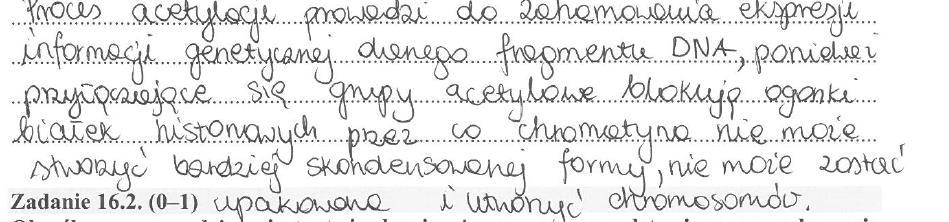 Proces acetylacji prowadzi do zahamowania ekspresji
informacji genetycznej danego fragmentu DNA, ponieważ
przyłączające się grupy acetylowe blokują ogonki
białek histonowych przez co chromatyna nie może
stworzyć bardziej skondensowanej formy, nie może zostać
Zadanie 16.2. (0–1) upakowana i utworzyć chromosomów.